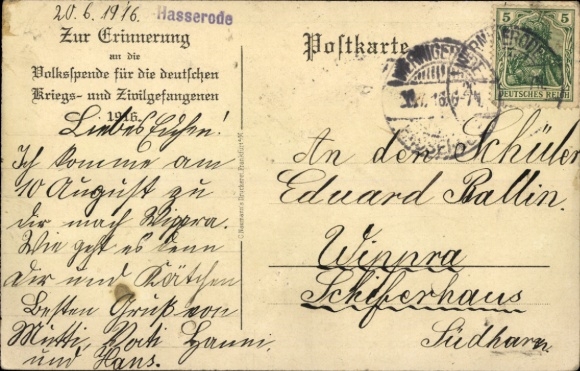 20.6.1916.
Hasserode
Zur Erinnerung
an die
Volksspende für die deutschen
Kriegs- und Zivilgefangenen
1916.
Liebes
Ich komme am
10 August zu
dir nach Wippra.
Wie geht es denn
dir und Kätchen
Besten Gruß von
Mutti, Vati Hanni
und Hans.
Postkarte
5 5
DEUTSCHES REICH
An den Schüler
Eduard Ballin.
Wippra
Schiferhaus
Südharz